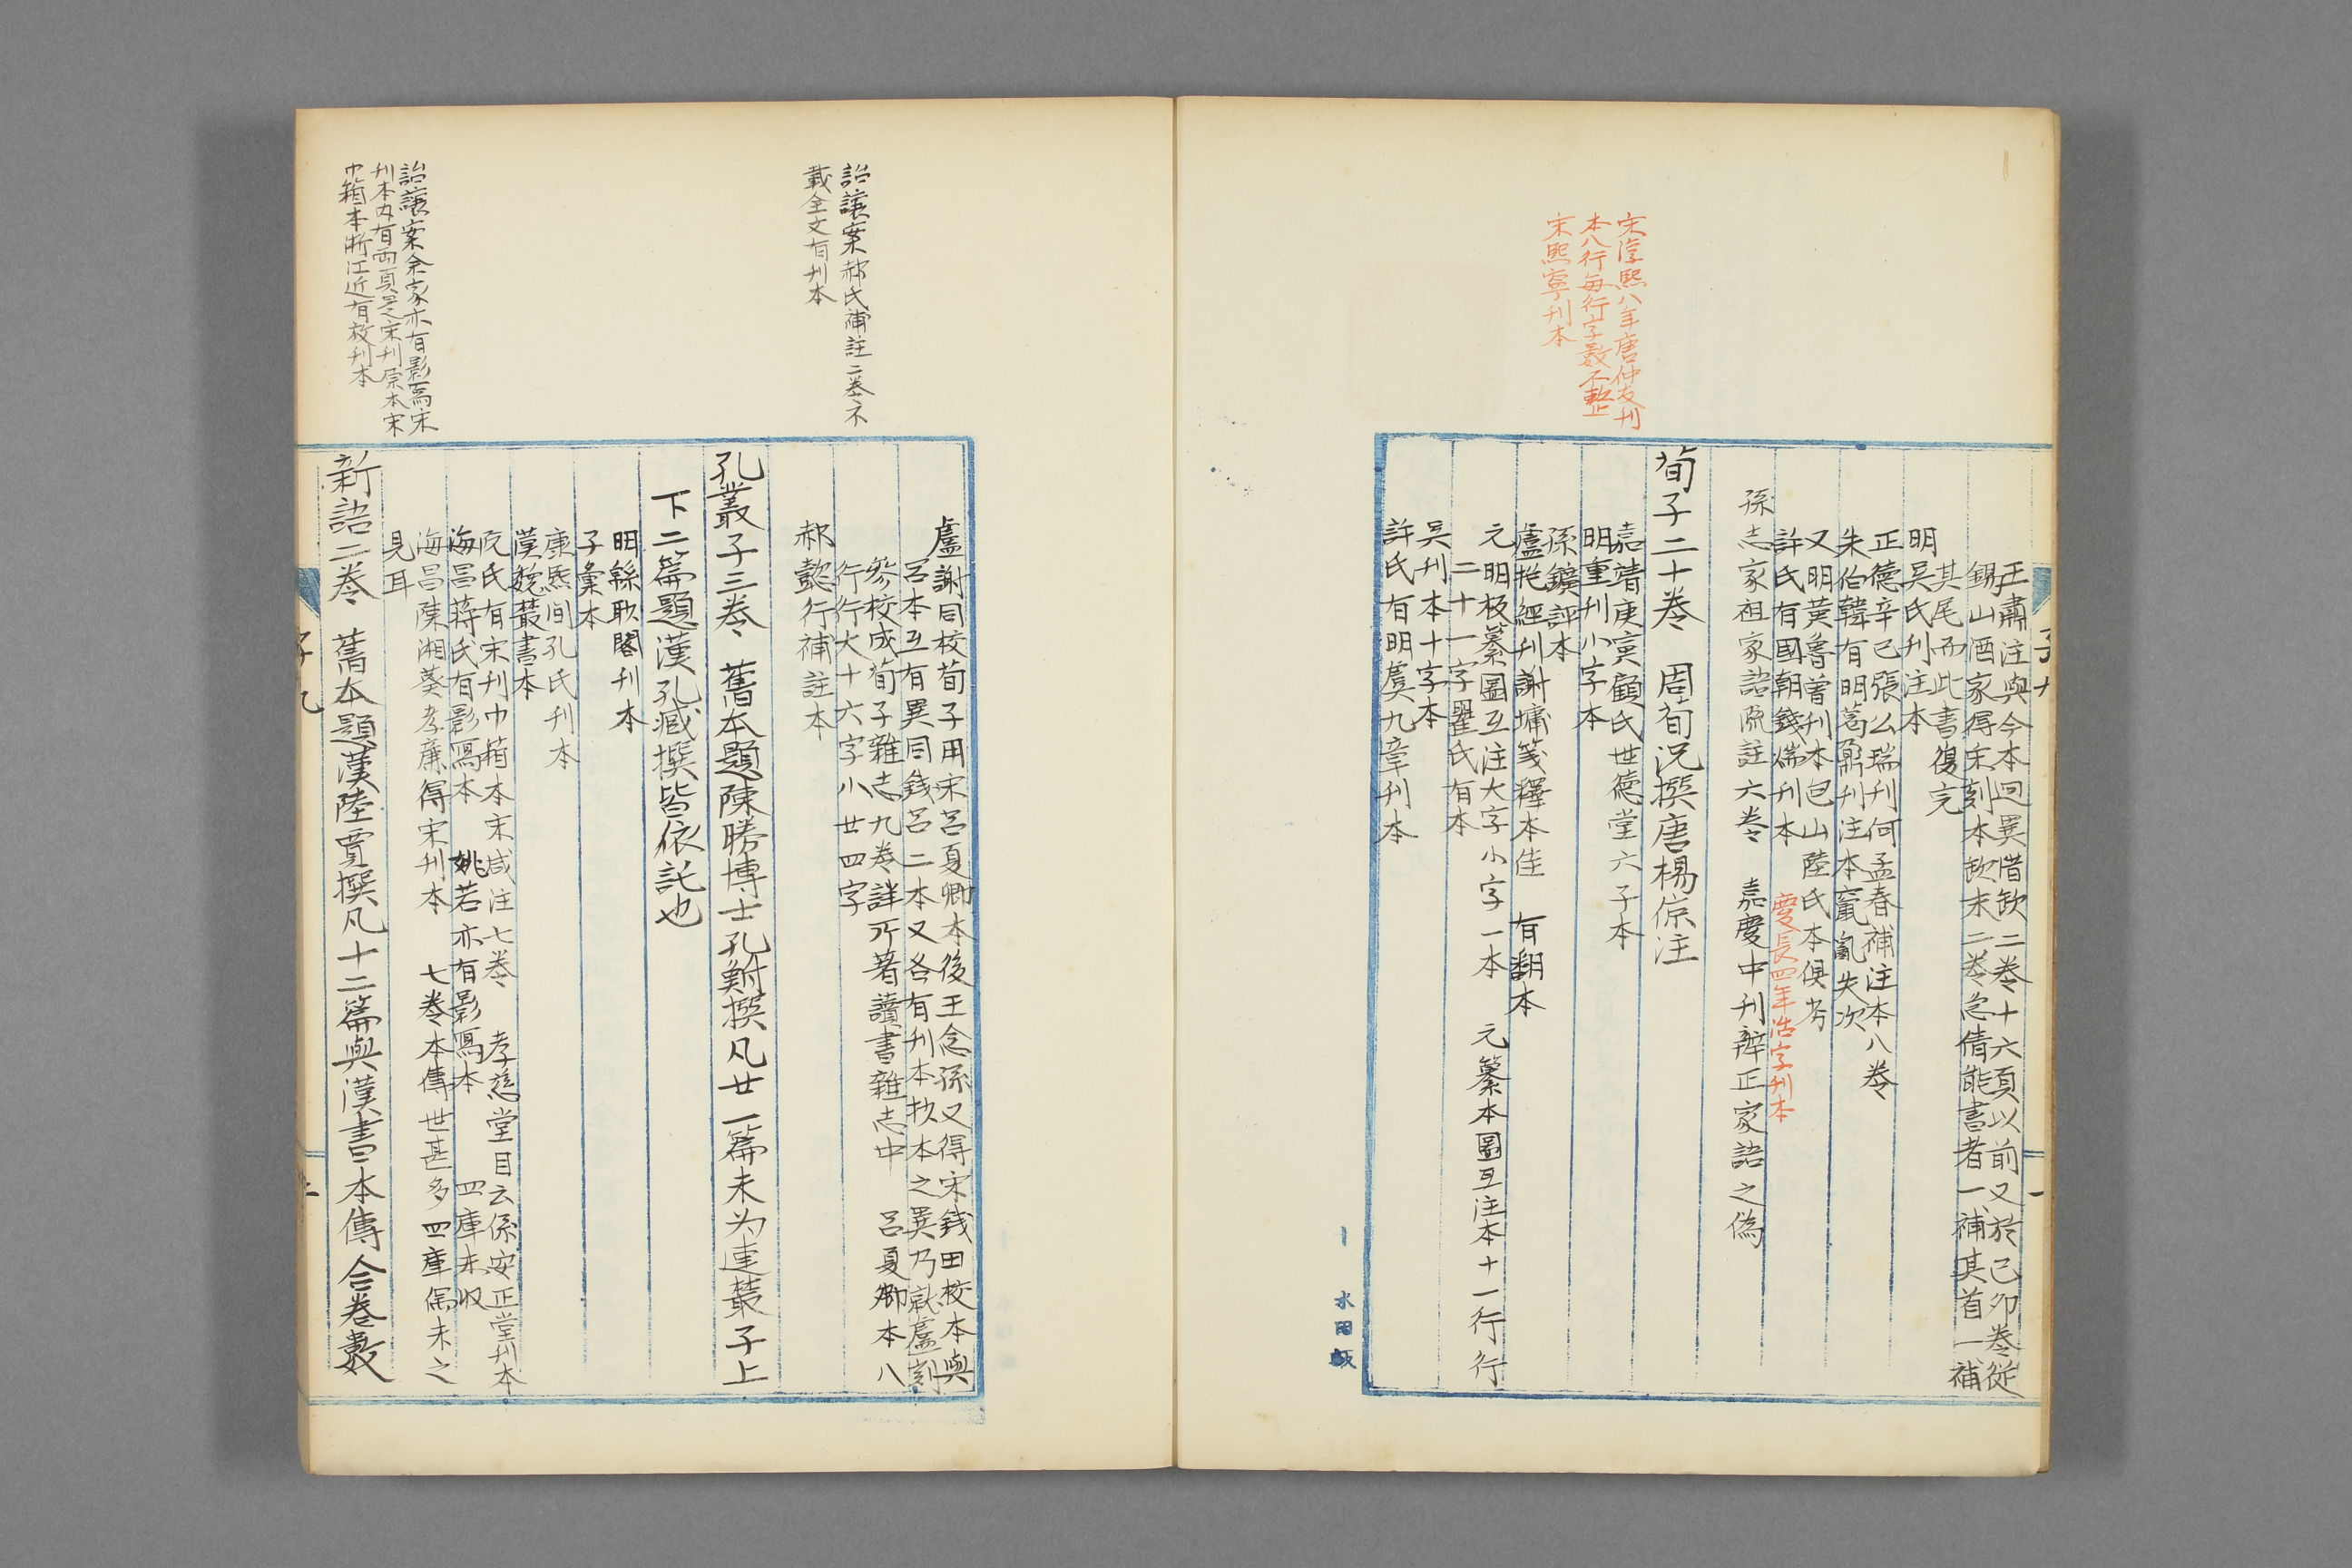 宋淳熙八年唐仲友刊
本八行每行字數不整
宋熙寧刊本
王肅注與今本迥異惜缺二卷十六頁以前又於己卯卷從
錫山酒家得宋刻本缺末二卷急倩能書者一補其首一補
其尾而此書復完
明吳氏刊注本
正德辛巳張公瑞刊何孟春補注本八卷
朱伯韓有明葛鼐刊注本竄亂失次
又明黃魯曾刊本包山陸氏本俱劣
許氏有國朝錢儶刊本
慶長四年活字刊本
孫志家祖家語疏註六卷 嘉慶中刊辨正家語之偽
荀子二十卷 周荀況撰唐楊倞注
嘉靖庚寅顧氏世德堂六子本
明重刊小字本
孫鑛評本
盧抱經刊謝墉箋釋本佳 有翻本
元明板纂圖互注大字小字一本 元纂本圖互注本十一行行
二十一字瞿氏有本
吳刊本十字本
許氏有明虞九章刊本
水田版
子九
一
詒讓案郝氏補註二卷不
載全文有刊本
詒讓案余家亦有影寫宋
刊本內有兩頁是宋刊原本宋
巾箱本浙江近有放刊本
盧謝同校荀子用宋呂夏卿本後王念孫又得宋錢田校本與
呂本互有異同錢呂二本又各有刊本抄本之異乃嶽盧刻
參校成荀子雜志九卷詳所著讀書雜志中 呂夏卿本八
行行大十六字小廿四字
郝懿行補註本
孔叢子三卷 舊本題陳勝博士孔鮒撰凡廿一篇末为連叢子上
下二篇題漢孔臧撰皆依託也
明緜眇閣刊本
子彙本
康熙间孔氏刊本
漢魏叢書本
阮氏有宋刊巾箱本宋咸注七卷 孝慈堂目云係安正堂刊本
海昌蔣氏有影寫本 姚若亦有影寫本 四庫未收
海昌陳湘葵孝廉得宋刊本 七卷本傳世甚多四庫偶未之
見耳
新語二卷 舊本題漢陸賈撰凡十二篇與漢書本傳合卷數
子九